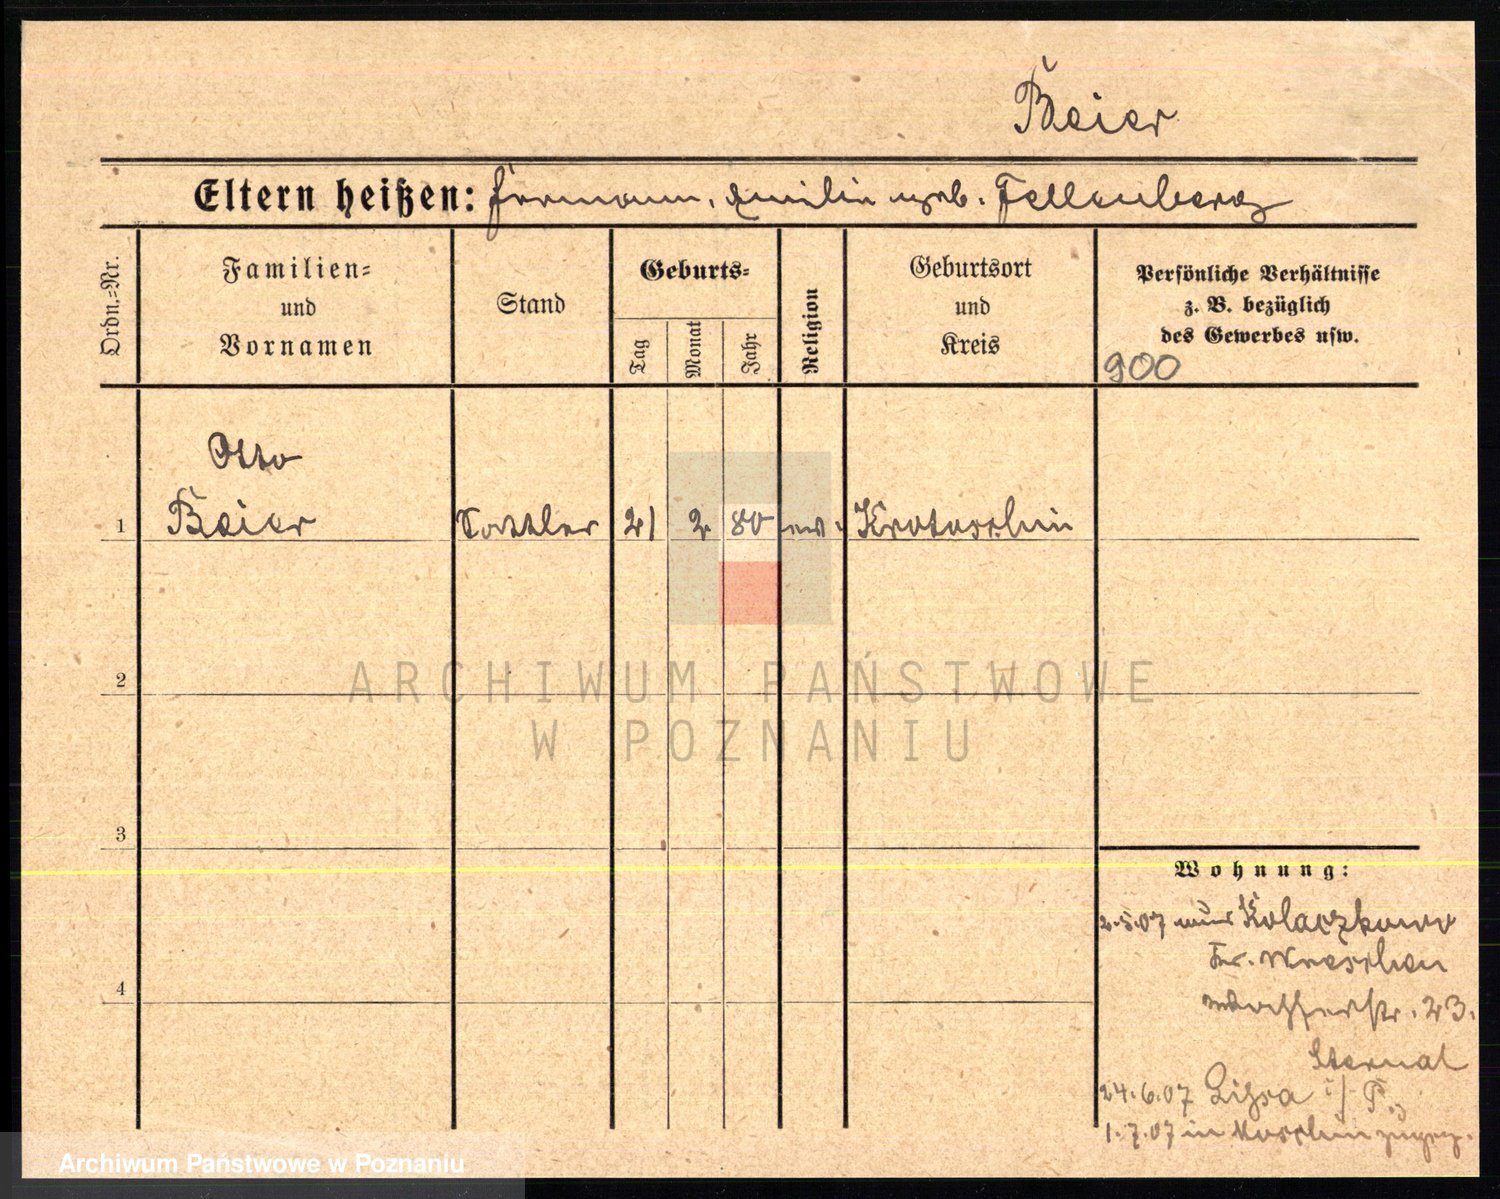 Beier
Eltern heißen: Hermann, Emilie geb. Fellenberg
Ordn.=Nr.
Familien=
und
Vornamen
Stand
Geburts=
Tag
Monat
Jahr
Religion
Geburtsort
und
Kreis
Persönliche Verhältnisse
z. B. bezüglich
des Gewerbes usw.
900
Otto
1 Beier Sattler 21 2 80 ev. Krotoschin
2
ARCHIWUM PAŃSTWOWE
W POZNANIU
3
Wohnung:
2.5.07 aus Kolaczkowo
Kr. Wreschen
4
23.
Sternal
24.6.07 Lissa i/P.
1.7.07 in
Archiwum Państwowe w Poznaniu